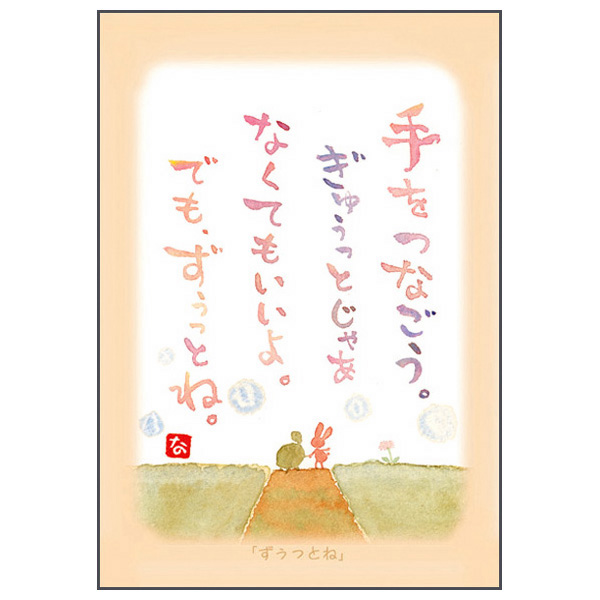 手をつなごう。
ぎゅうっとじゃあ
なくてもいいよ。
でも、ずぅっとね。
な
「ずぅっとね」